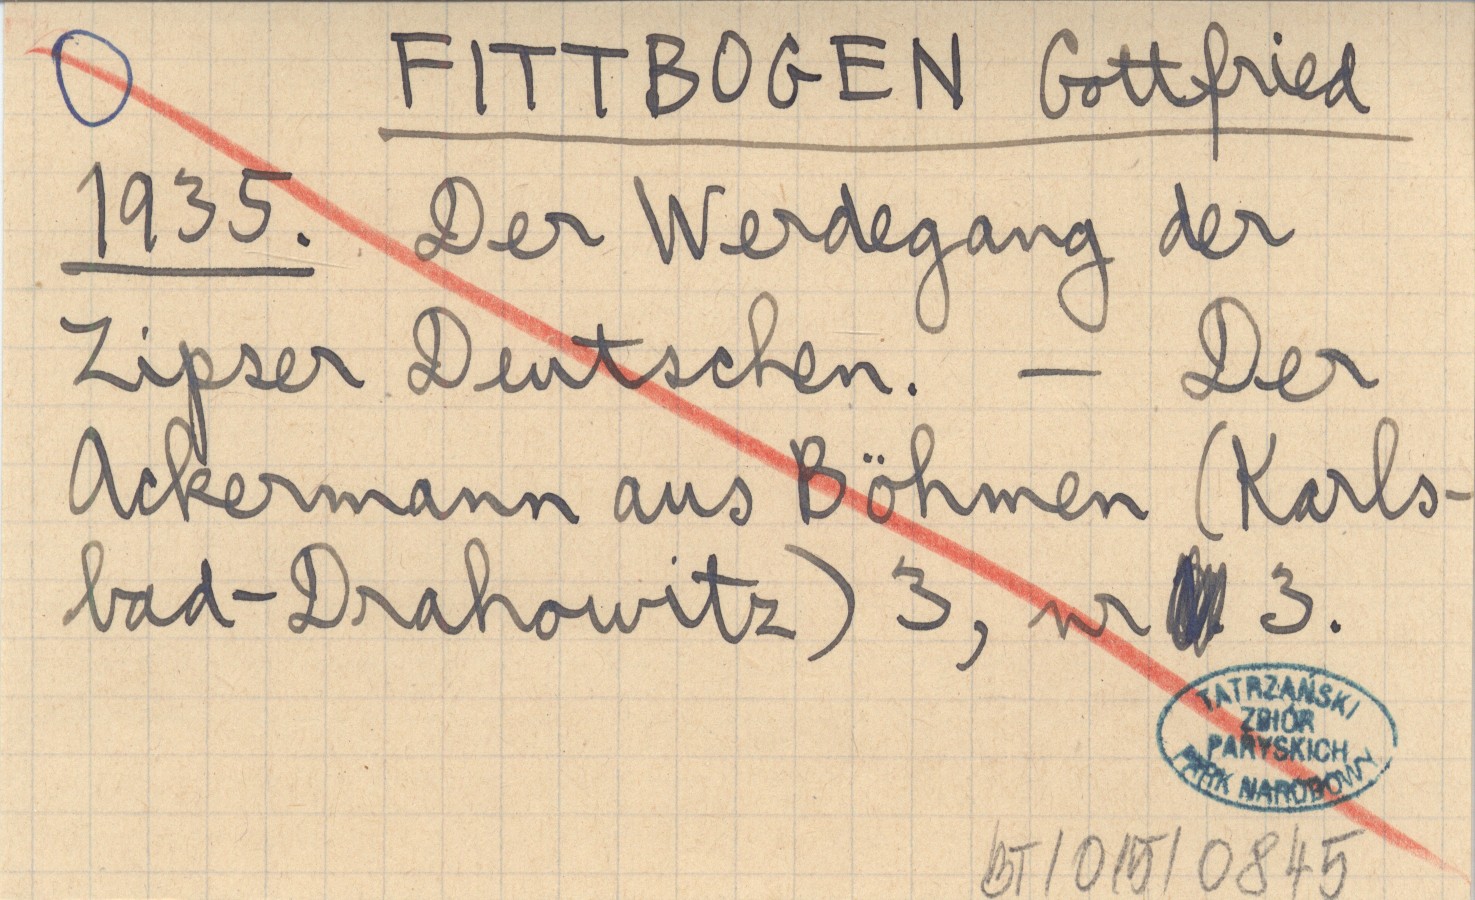 FITTBOGEN Gottfried
1935. Der Werdegang der
Zipser Deutschen. — Der
Ackermann aus Böhmen (Karls-
bad-Drahowitz) 3, nr 3.
TATRZAŃSKI
ZBIÓR
PARYSKICH
PARK NARODOWY
0845